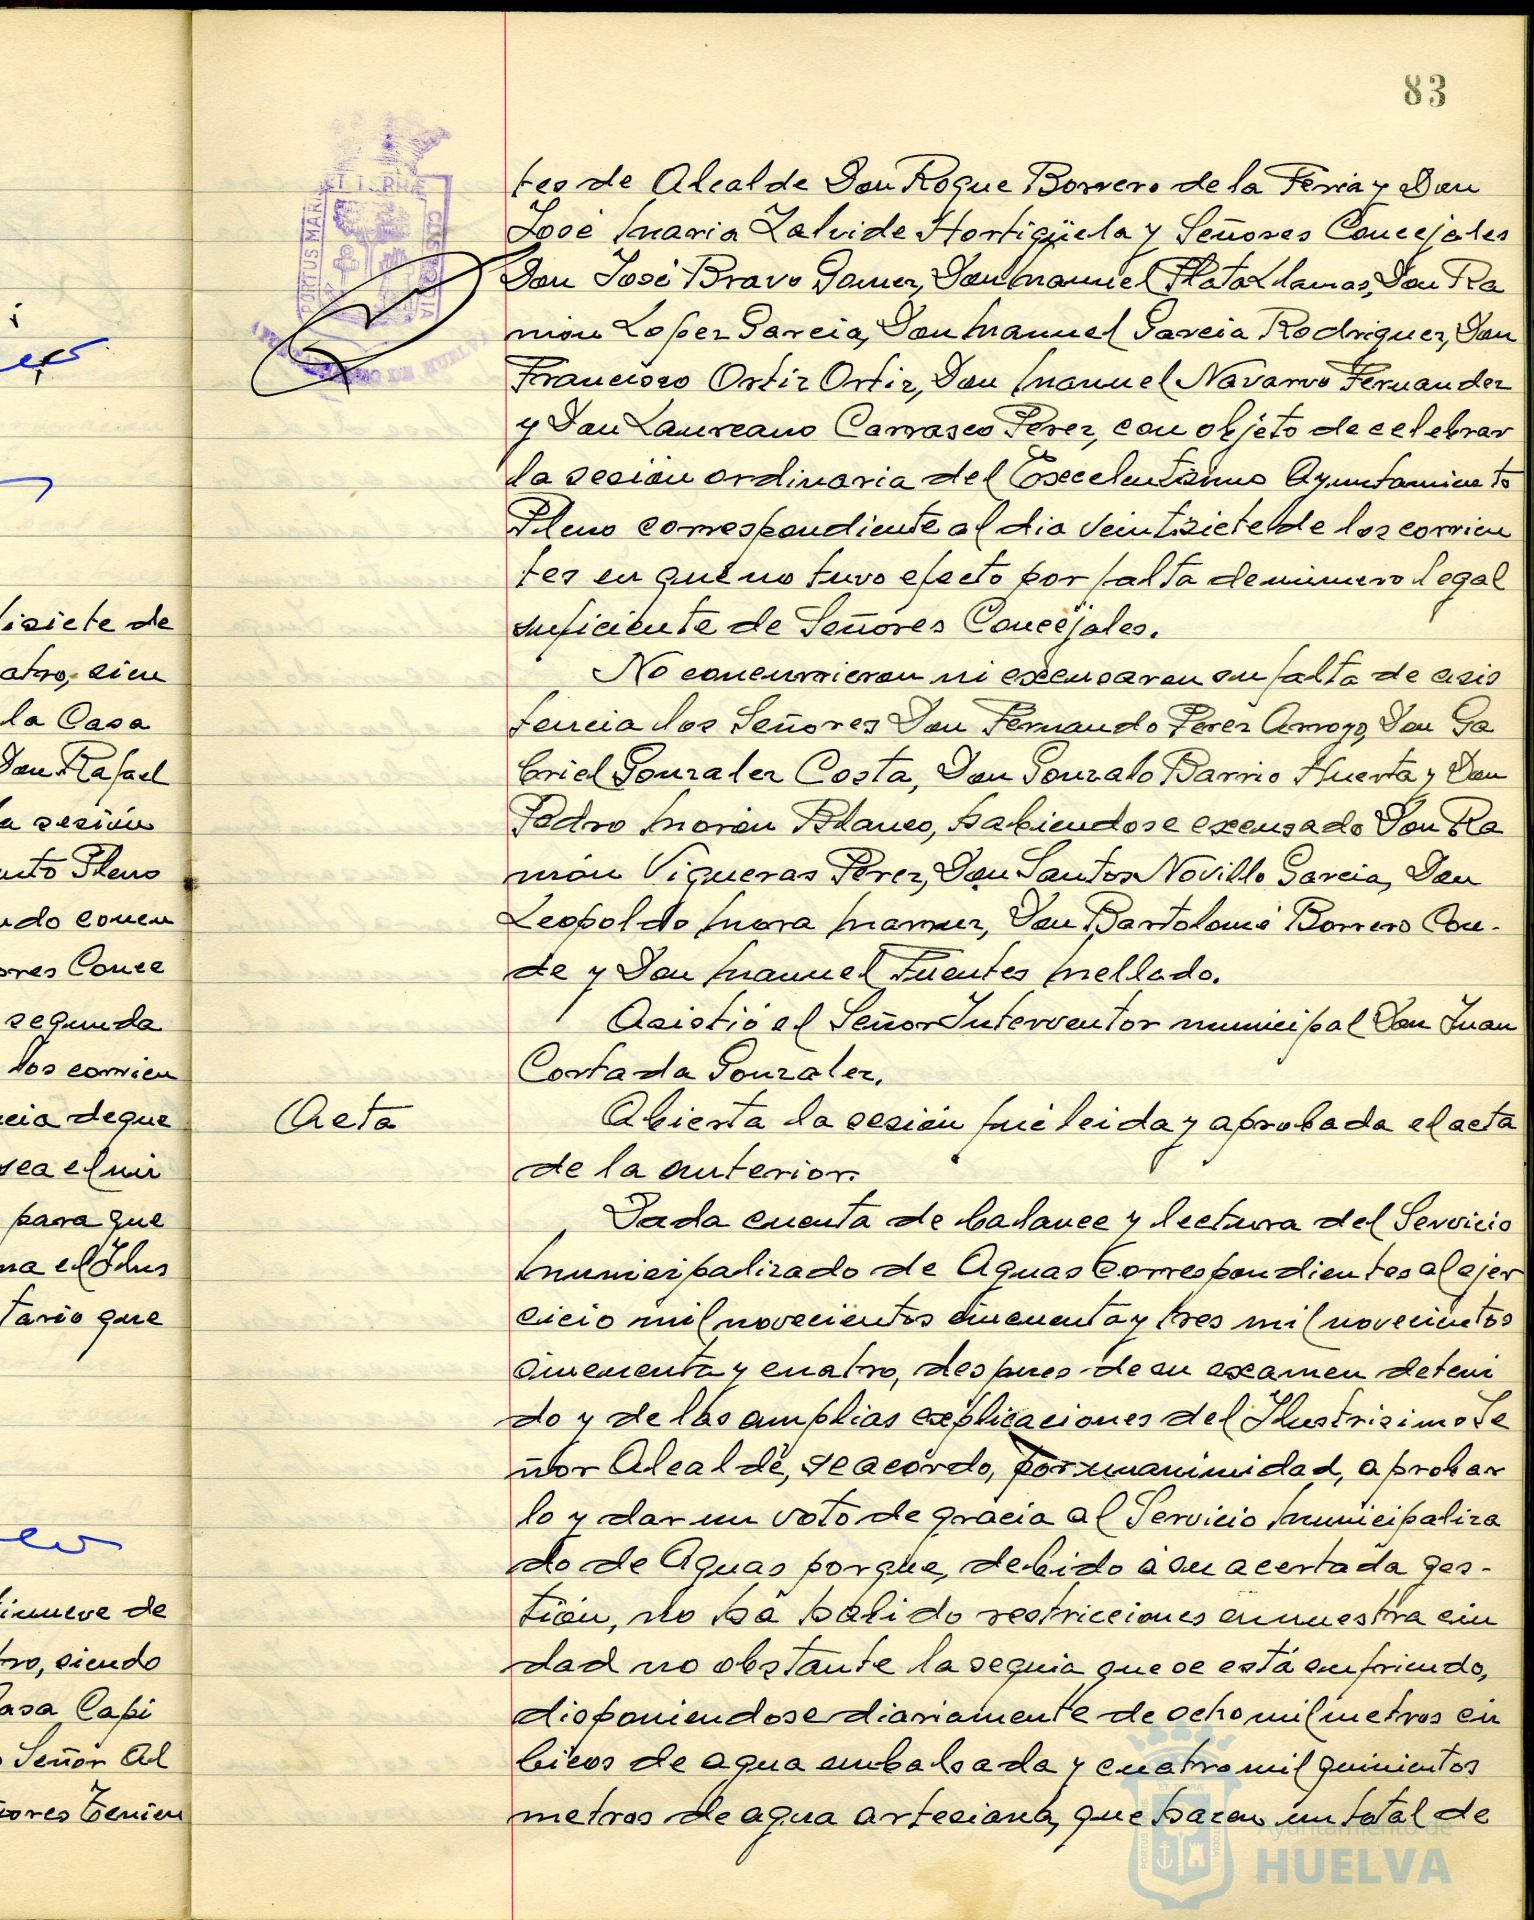 83
tes de Alcalde Don Roque Borrero de la Feria y Don
José Maria Zalvide Hortigüela y Señores Concejales
Don José Bravo Gomez, Don Manuel Plata Llamas, Don Ra
mon Lopez Garcia, Don Manuel Garcia Rodriguez, Don
Francisco Ortiz Ortiz, Don Manuel Navarro Fernandez
y Don Laureano Carrasco Perez, con objeto de celebrar
la sesión ordinaria del Excelentisimo Ayuntamiento
Pleno correspondiente al dia veintisiete de los corrien
tes en que no tuvo efecto por falta de número legal
suficiente de Señores Concejales.
No concurrieron ni excusaron su falta de asis
tencia los Señores Don Fernando Perez Arroyo, Don Ga
briel Gonzalez Costa, Don Gonzalo Barrio Huerta y Don
Pedro Morón Blanco, habiendose excusado Don Ra
món Vigueras Perez, Don Santos Novillo Garcia, Don
Leopoldo Mora Don Bartolomé Borrero Con-
de y Don Manuel Fuentes Mellado.
Asistió el Señor Interventor municipal Don Juan
Cortada Gonzalez.
Acta
Abierta la sesión fué leida y aprobada el acta
de la anterior.
Dada cuenta de balance y lectura del Servicio
Municipalizado de Aguas Correspondientes al ejer
cicio mil novecientos cincuenta y tres mil novecientos
cincuenta y cuatro, despues de su examen deteni
do y de las amplias explicaciones del Ilustrisimo Se
ñor Alcalde, se acordo, por unanimidad, aprobar
lo y dar un voto de gracia al Servicio Municipaliza
do de Aguas porque, debido a su acertada ges-
tión, no ha habido restricciones en nuestra ciu
dad no obstante la sequia que se está sufriendo,
disponiendose diariamente de ocho mil metros cú
bicos de agua embalsada y cuatro mil quinientos
metros de agua artesiana, que hacen un total de
isiete de
atro, sien
la Casa
Don Rafael
a sesión
nto Pleno
ndo concu
ores Conce
segunda
los corrien
cia de que
sea el mi
para que
na el Ilus
tario que
inueve de
tro, siendo
asa Capi
Señor Al
ores Tenien
PORTUS MARIS ET TERRÆ CUSTODIA
Ayuntamiento de
HUELVA